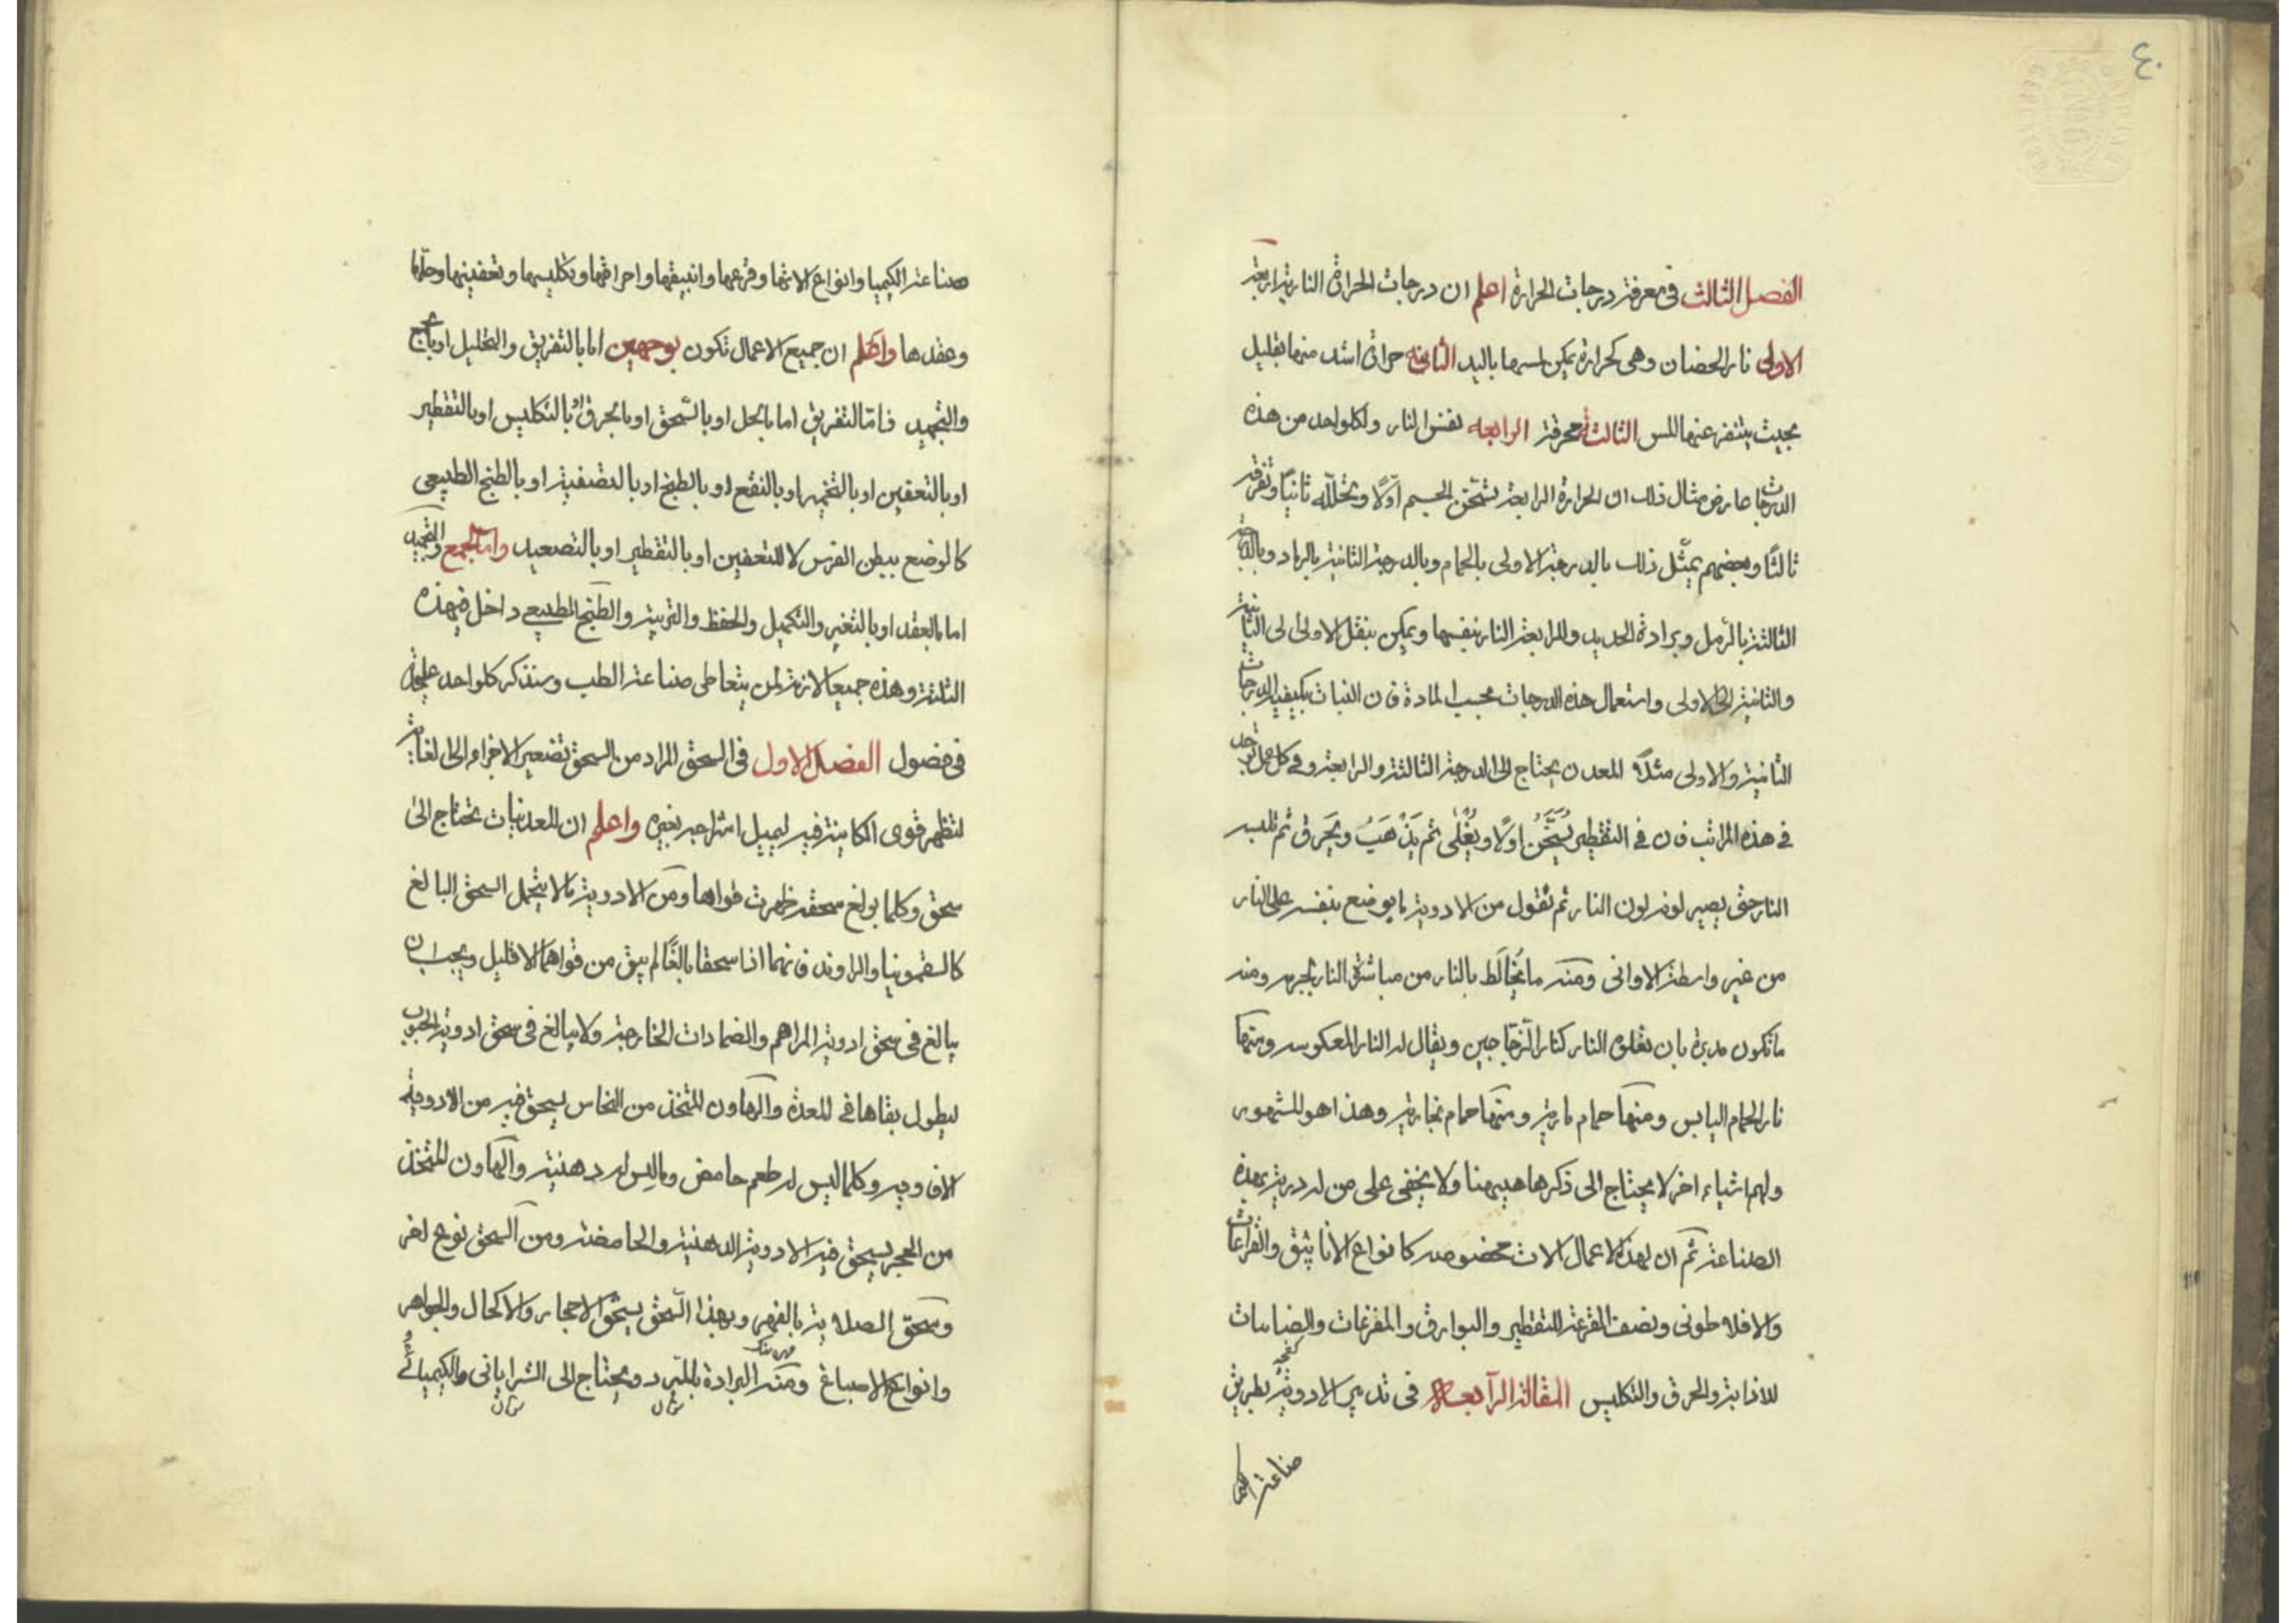 ٤٠
الفصل الثالث في معرفة درجات الحرارة اعلم ان درجات الحرارة النارية اربعة
الاولى نار الحضان وهي كحرارة يمكن لمسها باليد الثانية حرارة اشد منها بقليل
بحيث يتنفر عنها اللمس الثالثة محرقة الرابعة نفس النار ولكل واحد من هذه
الدرجات عارض مثال ذلك ان الحرارة الرابعة تسخن الجسم اولًا وتحلله ثانيًا وتفرقه
ثالثًا وبعضهم يمثّل ذلك بالدرجة الاولى بالحمام وبالدرجة الثانية بالرماد وبالدرجة
الثالثة بالرمل وبرادة الحديد والرابعة النار نفسها ويمكن ينقل الاولى الى الثانية
والثانية الى الاولى واستعمال هذه الدرجات بحسب المادة فان النبات يكفيه الدرجات
الثانية والاولى مثلًا المعدن يحتاج الى الدرجة الثالثة والرابعة وفي كل عمل توجد
في هذه المراتب فان في التقطير يُسَخَّنُ اولًا ويُغْلى ثم يَذْهَبُ ويَحرق ثم تلبسه
النار حتى يصير لونه لون النار ثم نقول من الادوية ما يوضع بنفسه على النار
من غير واسطة الاواني ومنه ما يُخالَط بالنار من مباشرة النار لجرمه ومنه
ما تكون مدبرة بان تعلوه النار كنار الزجاجين ويقال له النار المعكوسه ومنها
نار الحمام اليابس ومنها حمام مارية ومنها حمام بخارية وهذا هو المشهور
ولهم اشياء اخر لا يحتاج الى ذكرها هيهنا ولا يخفى على من له دربة بهذه
الصناعة ثم ان لهذه الاعمال الات مخصوصه كانواع الانابيق والقراعات
والافلاطوني ونصف القرعة للتقطير والبوارق والمفرغات والصبابات
للاذابة والحرق والتكليس المقالة الرابعة في تدبير الادوية بطريق
صناعة الكيميا
صناعة الكيميا وانواع الاتها وقرعها وانبيقها واحراقها وتكليسها وتعفينها وحلها
وعقدها واعلم ان جميع الاعمال تكون بوجهين اما بالتفريق والتحليل او بالجمع
والتجميد فامّا التفريق اما بالحل او بالسّحق او بالحرق او بالتكليس او بالتقطير
او بالتعفين او بالتخمير او بالنقع او بالطبخ او بالتصفية او بالطبخ الطبيعي
كالوضع ببطن الفرس لا للتعفين او بالتقطير او بالتصعيد وامّا الجمع والتجميد
اما بالعقد او بالتغير والتكميل والحفظ والتربية والطبخ الطبيعي داخل في هذه
الثلثة وهذه جميعا لازمة لمن يتعاطى صناعة الطب وسنذكر كل واحد عليحدة
في فصول الفصل الاول في السحق المراد من السحق تصغير الاجزاء الى الغاية
لتظهر قوى الكاينة فيه ليميل امتزاجه بغيره واعلم ان المعدنيات تحتاج الى
سحق وكلما بولغ سحقه ظهرت قواها ومن الادوية ما لا يتحمل السحق البالغ
كالسقمونيا والراوند فانهما اذا سحقا بالغًا لم يبق من قواهما الا قليل ويجب ان
يبالغ في سحق ادوية المراهم والضمادات الخارجة ولا يبالغ في سحق ادوية الحبوب
ليطول بقاها في المعدة والهاون المتخذ من النحاس يسحق فيه من الادوية
الافاويه وكلما ليس له طعم حامض وما ليس له دهنية والهاون المتخذ
من الحجر يسحق فيه الادوية الدهنية والحامضة ومن السحق نوع اخر
وسحق الصلاية بالفهر وبهذا السّحق يسحق الاحجار والاكحال والجواهر
وانواع الاصباغ ومنه البرادة بالمبرد ويحتاج الى الشراباتي والكيميائي